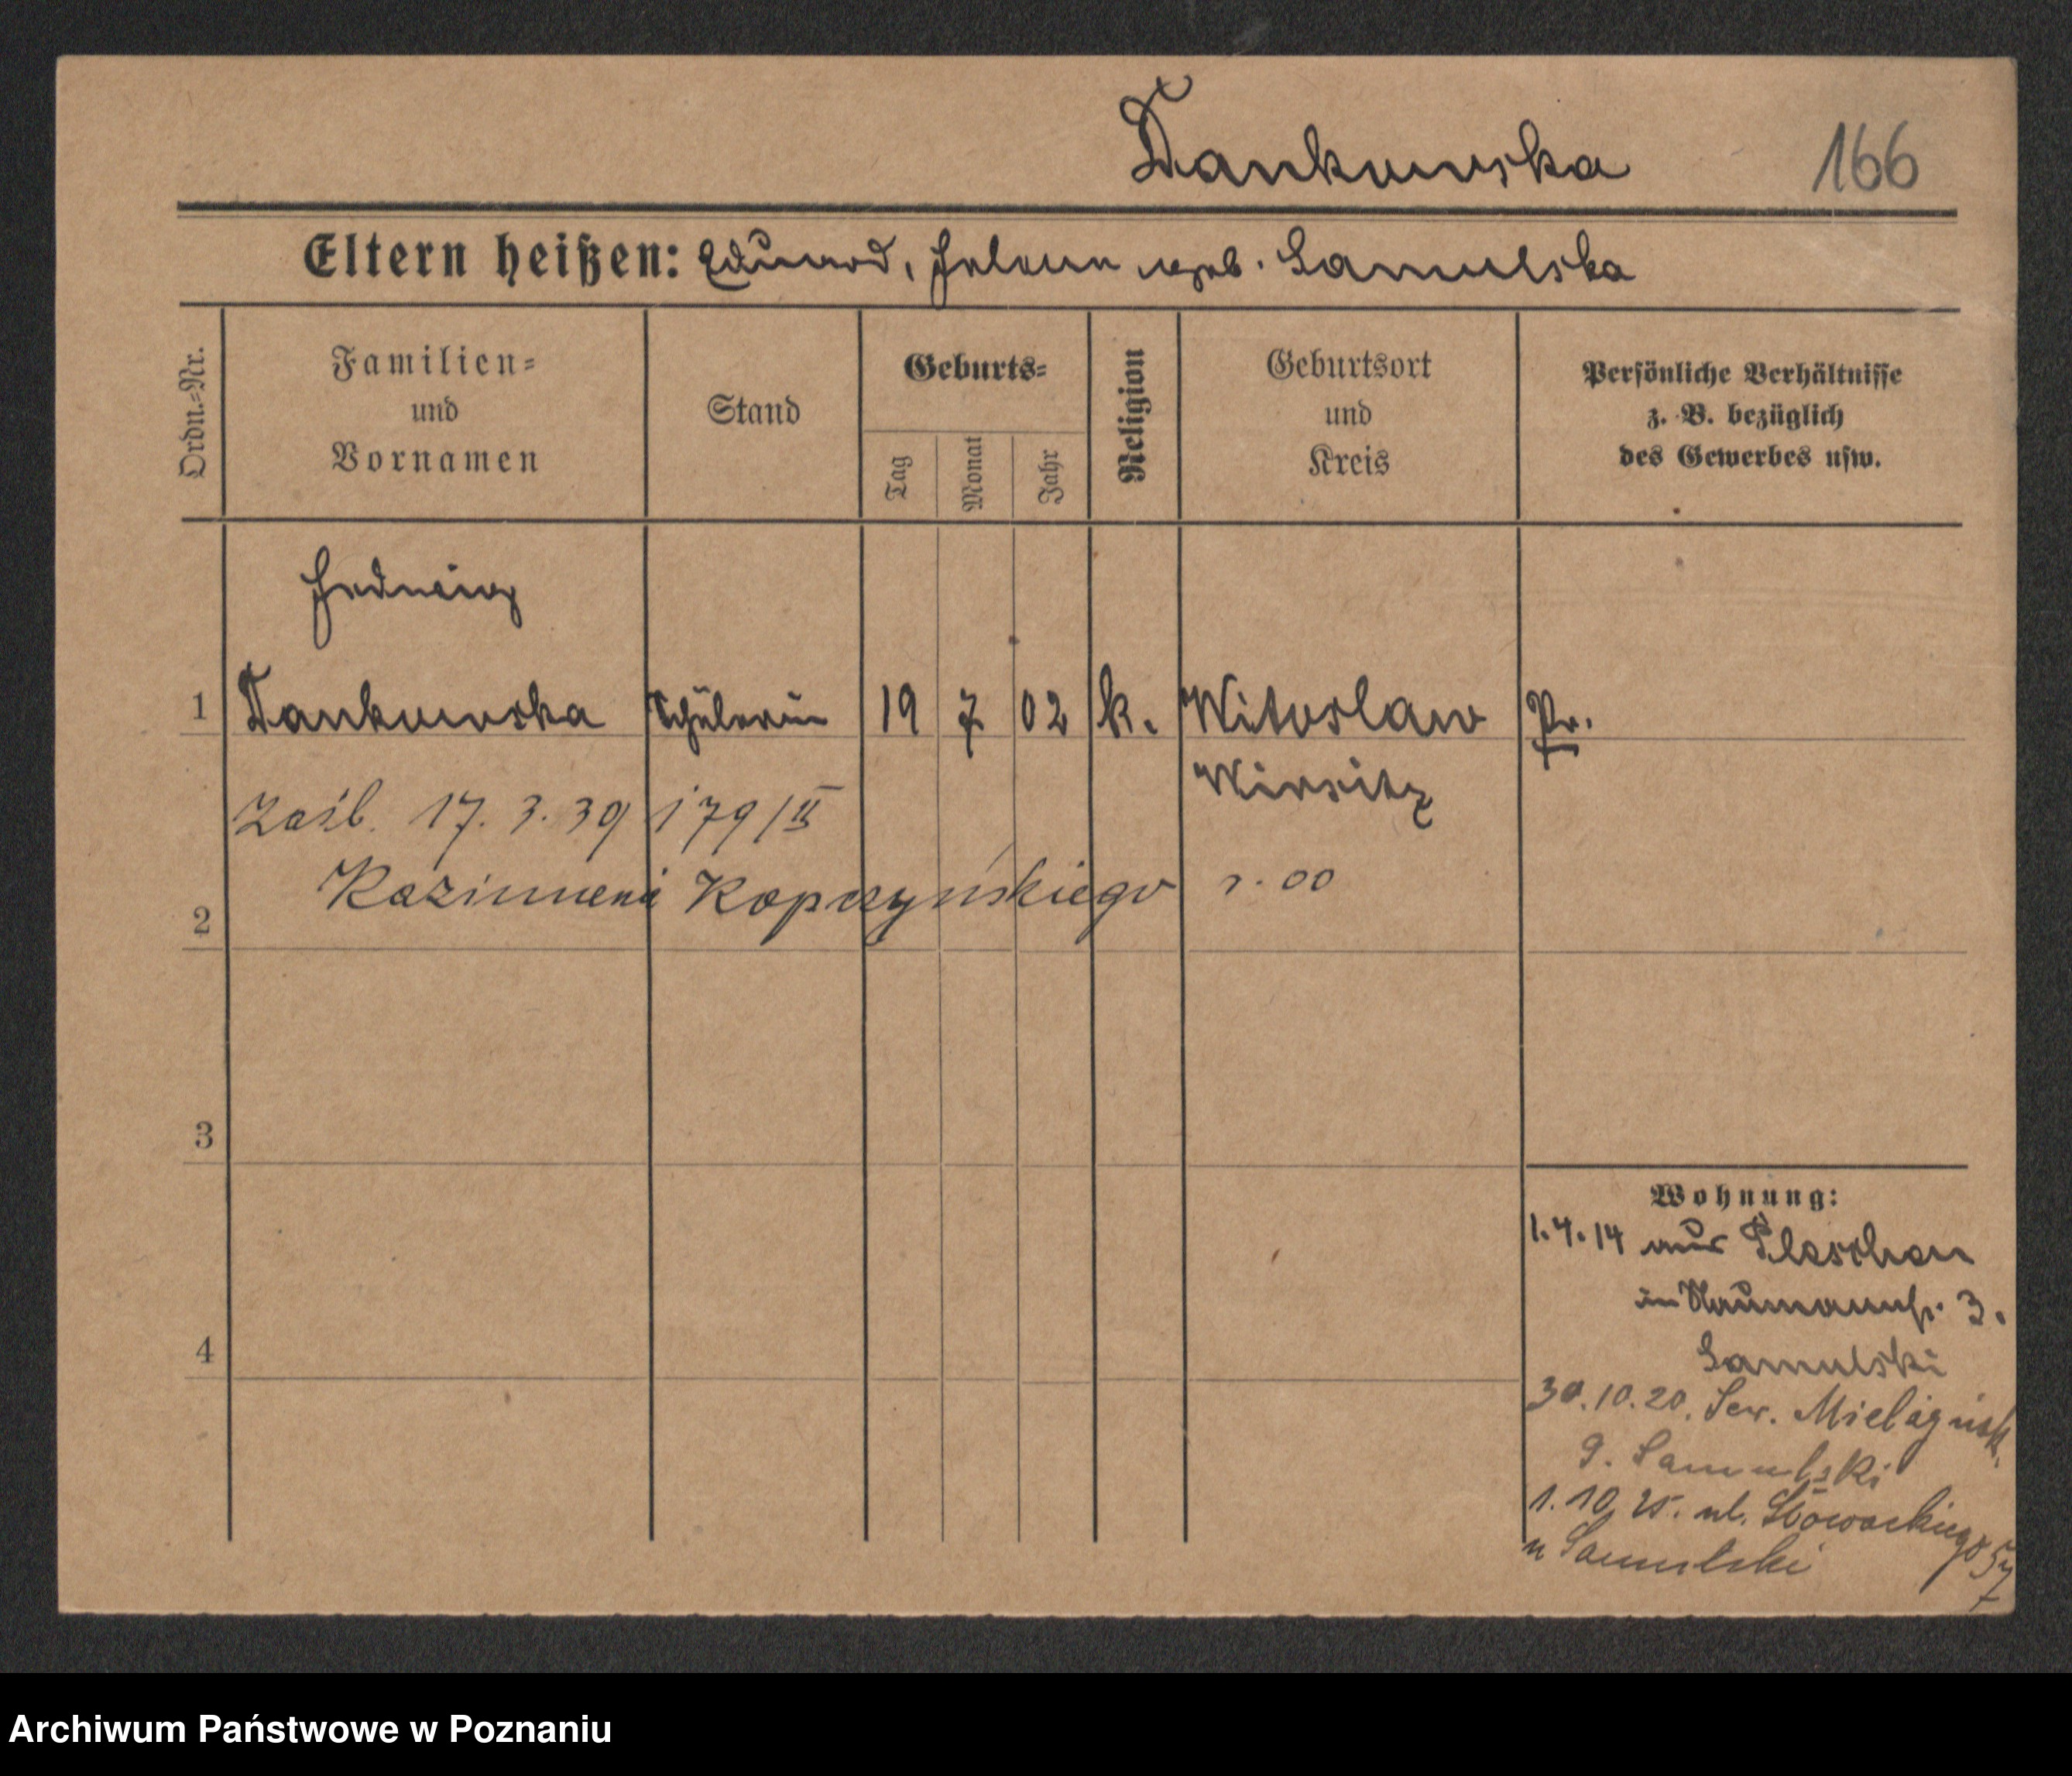 Dankowska 166
Eltern heißen: Eduard, Helene geb. Samulska
Ordn.-Nr.
Familien-
und
Vornamen
Stand
Geburts-
Tag
Monat
Jahr
Religion
Geburtsort
und
Kreis
Persönliche Verhältnisse
z. B. bezüglich
des Gewerbes usw.
Hedwig
1 Dankowska Schülerin 19 7 02 k. Witoslaw Pr.
Wirsitz
Zaśl. 17. 3. 39 179/II
2 Kazimierz Kopczyńskiego r. 00
3
4
Wohnung:
1.4.14 aus Pleschen
in Naumannstr. 3.
Samulski
30.10.20. Sew. Mielżyńsk.
9. Samulski
1. 10. 25. ul. Słowackiego 57
u Samulski
Archiwum Państwowe w Poznaniu